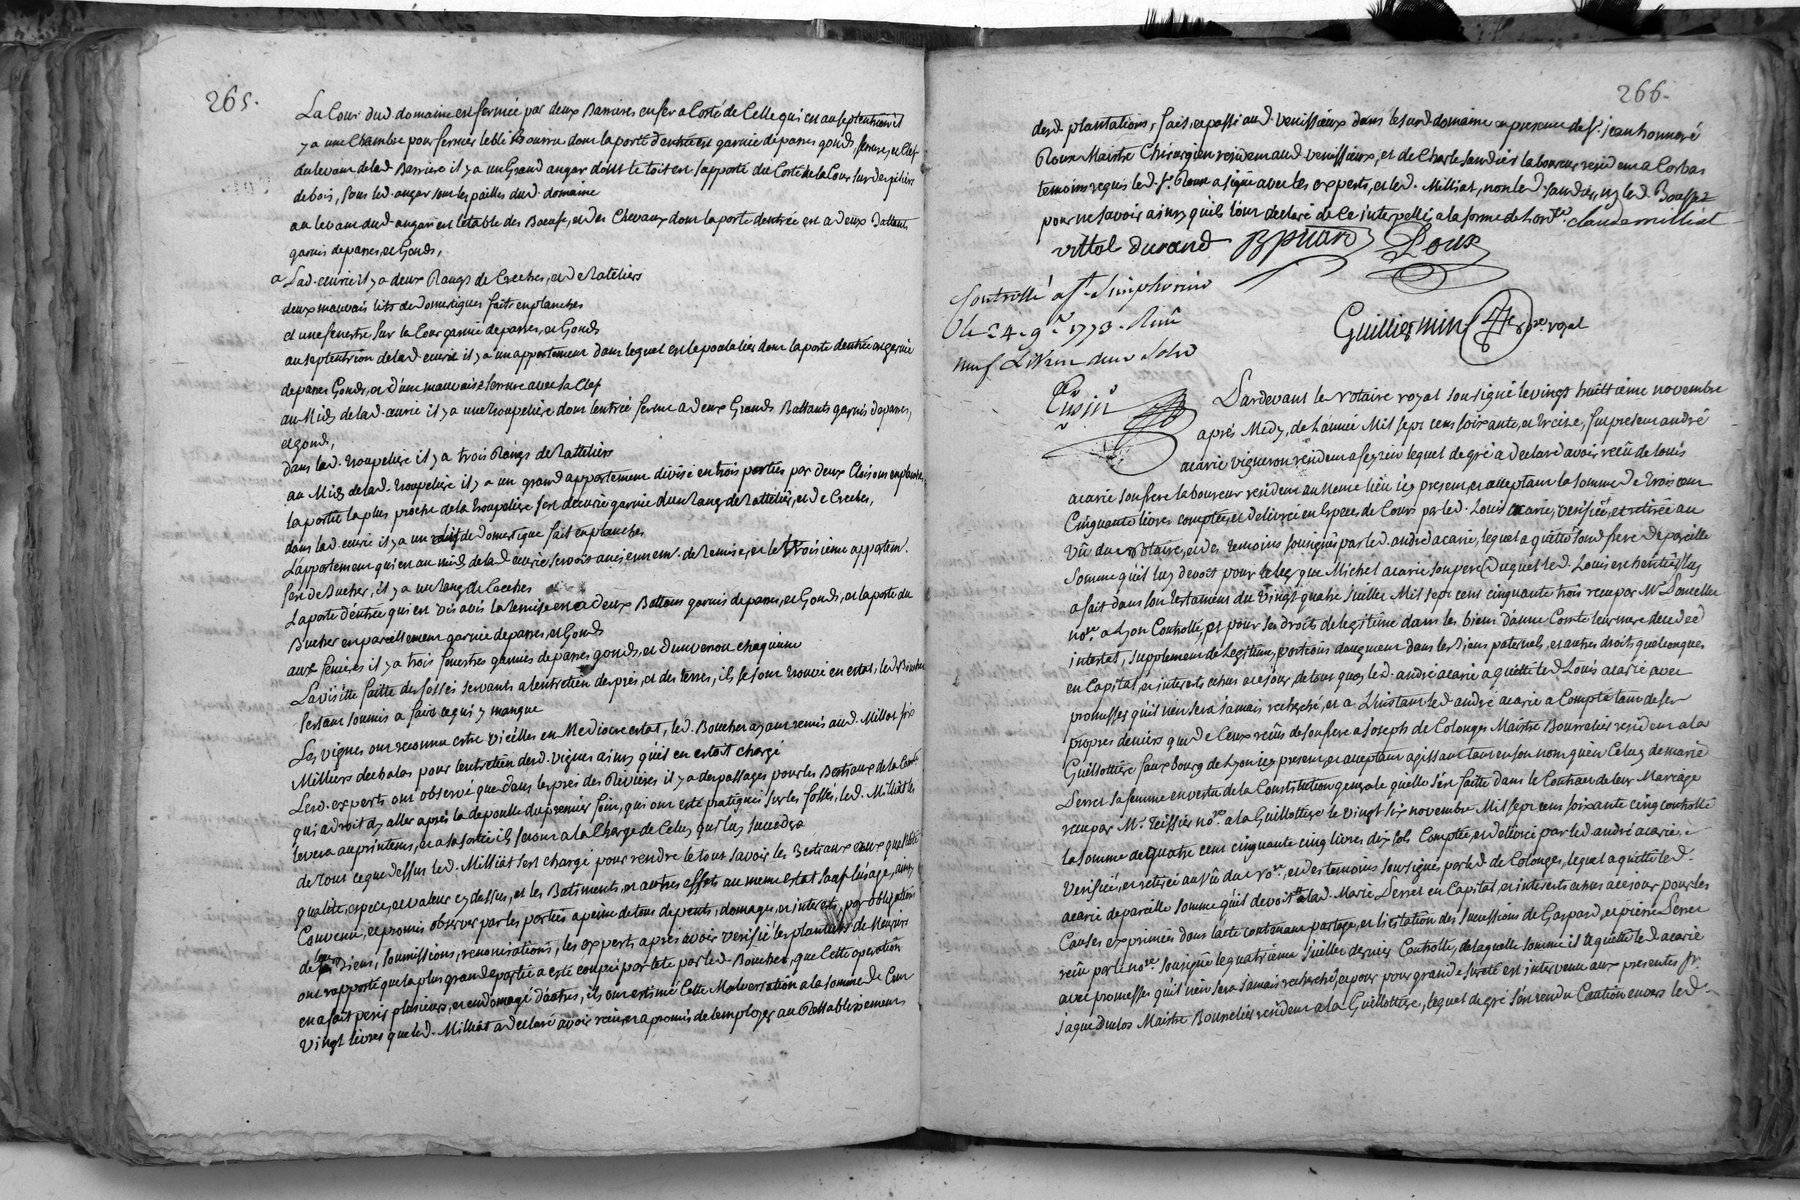 265.
La Cour dud domaine est fermée par deux Barrieres en fer a Costé de Celle qui est au septentrion il
y a une Chambre pour fermer le blé Bourru dont la porte d'entrée est garnie de parres gonds, serrure, et Clef
au levant de lad Barriere il y a un Grand angar dont le toit est supporté du Costé de la Cour sur des piliers
de bois, sous led angar sont les pailles dud domaine
au levant dud angar est l'etable des Boeufs, et des Chevaux dont la porte d'entrée est a deux Battants
garnis de parres, et Gonds,
a Lad. ecurie il y a deux Rangs de Creches, et de Rateliers
deux mauvais lits de domestiques faits en planches
et une fenestre sur la Cour garnie de parres, et Gonds
au septentrion de lad ecurie il y a un appartement dans lequel est le poulalier dont la porte d'entrée est garnie
de parres Gonds, et d'une mauvaise serrure avec sa Clef
au Midy de lad. ecurie il y a une troupeliere dont l'entrée ferme a deux Grands Battants garnis de parres,
et gonds,
dans lad. troupeliere il y a trois Rangs de Ratteliers
au Midy de lad. troupeliere il y a un grand appartement divisé en trois parties par deux Cloisons en planches,
la partie la plus proche de la troupeliere sert d'ecurie garnie d'un Rang de Ratteliers, et de Creches,
dans lad. ecurie il y a un lit de domestique fait en planches
L'appartement qui est au midy de lad ecurie servoit anciennem. de Remise, et le troisieme appartem.
sert de Bucher, il y a un rang de Creches
La porte d'entrée qui est vis avis la Remise est a deux Battans garnis de parres, et Gonds, et la porte du
Bucher est pareillement garnie de parres, et Gonds
aux feniers il y a trois fenestres garnies de parres gonds, et d'un verou chaqu'une
La visitte faitte des fossés servants a l'entretien des prés, et des terres, ils se sont trouvé en estat, led Boucher
s'estant soumis a faire ce qui y manque
Les vignes ont reconnu estre vieilles en Mediocre estat, led. Boucher ayant remis aud. Milliat six
Milliers d'echalas pour l'entretien desd. vignes ainsy qu'il en estoit chargé
Lesd. experts ont observé que dans les prés des Rivieres il y a des passages pour les Bestiaux de la
qui a droit d'y aller après la depouille du premier foin, qui ont esté pratiqués sur les fossés, led. Milliat les
levera au printems, et a sa sortie ils seront a la Charge de Celuy qui luy succedera
de tout ce que dessus led. Milliat s'est chargé pour rendre le tout savoir les Bestiaux en
qualité, espece, et valeur cy dessus, et les Batiments, et autres effets au meme estat sauf l'usage, ainsy
Convenu, et promis observer par les parties a peine de tous depents, domages, et interests, par obligations
de leurs Biens, soumissions, renonciations, les experts après avoir verifié les plantiers de Meuriers
ont rapporté que la plus grande partie a esté coupée par tete par led. Boucher, que Cette operation
en a fait perir plusieurs, et endomagé d'autres, ils ont estimé Cette Malversation a la somme de Cent
Vingt livres que led. Milliat a declaré avoir reçu, et a promis de l'employer au Retablissement
266.
desd. plantations, fait, et passé aud. venissieux dans le susd domaine en presence de Sr. jean honnoré
Roux Maistre Chirurgien resident aud venissieux, et de Charle Sandier laboureur resident a Corbas
temoins requis led. Sr. Roux a signé avec les experts, et led. Milliat, non led. Sandier, ny led. Boucher
pour ne savoir ainsy qu'ils l'ont declaré de Ce interpellé a la forme de l'ordce. claude milliat
vittal durand Roux
Guilliermin Nre. royal
Controllé a St. Simphorien
le 24 9re 1773. Reçu
neuf Livres deux Sols
Pardevant le Notaire royal soussigné le vingt huitieme novembre
après Midy, de l'année Mil sept cent soixante, et treize, fut present andré
acarie vigneron resident a feyzin lequel de gré a declaré avoir reçû de Louis
acarie son frere laboureur resident au meme lieu icy present, et acceptant la somme de trois cent
Cinquante livres comptée, et delivrée en Especes de Cours par led. Louis acarie, verifiée, et retirée au
Vû du notaire, et des temoins soussignés par led. andré acarie, lequel a quitté sond frere de pareille
Somme qu'il luy devoit pour le leg que Michel acarie son pere (duquel led. Louis est heritier) luy
a fait dans son testament du vingt quatre juillet Mil sept cent cinquante trois reçu par Mr.
nore. a Lyon Controllé, et pour ses droits de legitime dans les biens d'anne Comte leur mere decedeé
intestat, supplement de Legitime, portions d'augment dans les Biens paternels, et autres droits quelconques
en Capital, et interests echus a ce jour, de tout quoy led. andré acarie a quitté led Louis acarie avec
promesses qu'il n'en sera jamais recherché, et a L'instant led andré acarie a Compté tant de ses
propres deniers que de Ceux reçûs de son frere a Joseph de Colonges Maistre Bourrelier resident a la
Guillottiere fauxbourg de Lyon icy present, et acceptant agissant tant en son nom qu'en Celuy de marie
Perret sa femme en vertu de la Constitution generale qu'elle s'est faitte dans le Contrat de leur Mariage
reçu par Mr. Teissier nore. a la Guillottiere le vingt six novembre Mil sept cent soixante cinq controllé
la somme de quatre cent cinquante cinq livres dix sols Comptée, et delivrée par led andré acarie
Verifiée, et retirée au Vû du no.re, et des temoins soussignés par led de Colonges, lequel a quitté led.
acarie de pareille somme qu'il devoit a lad. Marie Perret en Capital, et interests echus a ce jour pour les
Causes exprimées dans l'acte contenant partage, et licitation des successions de Gaspard, et pierre Perret
reçu par le nore. soussigné le quatrieme juillet dernier Controllé, de laquelle somme il a quitté led acarie
avec promesses qu'il n'en sera jamais recherché, et pour plus grande sureté est intervenu aux presentes Sr.
jaque Duclos Maistre Bourrelier resident a la Guillottiere, lequel de gré s'est rendu Caution envers led.